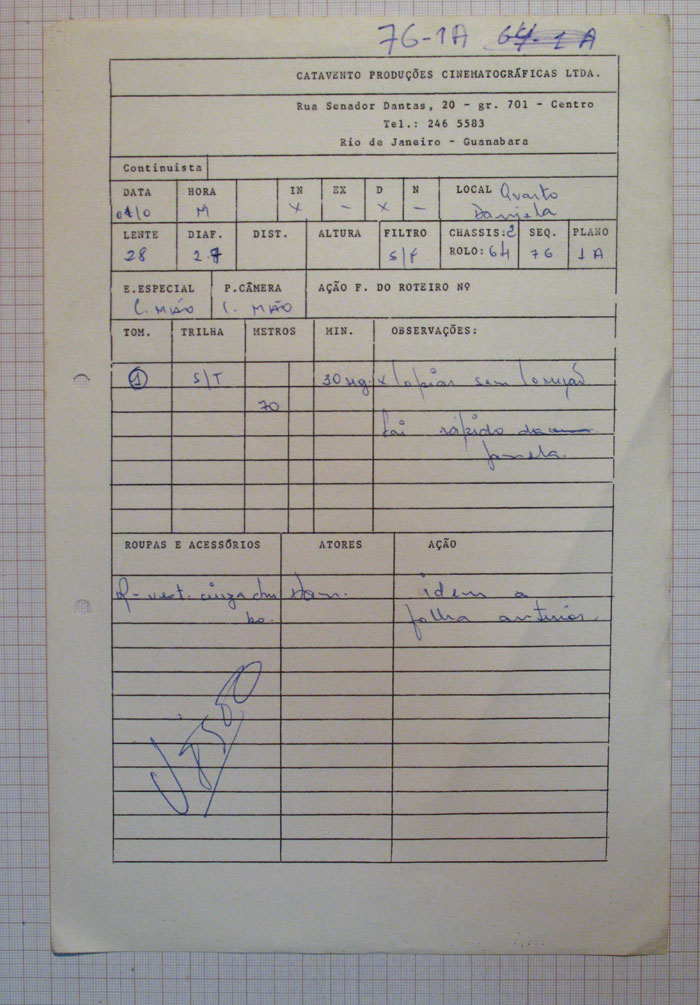 76-1A 64-1A
CATAVENTO PRODUÇÕES CINEMATOGRÁFICAS LTDA.
Rua Senador Dantas, 20 - gr. 701 - Centro
Tel.: 246 5583
Rio de Janeiro - Guanabara
Continuista
DATA HORA IN EX D N LOCAL Quarto
M X - X - Daniela
LENTE DIAF. DIST. ALTURA FILTRO CHASSIS:2 SEQ. PLANO
28 2.8 S/F ROLO:64 76 1A
E.ESPECIAL P.CÂMERA AÇÃO F. DO ROTEIRO Nº
C. MÃO C. MÃO
TOM. TRILHA METROS MIN. OBSERVAÇÕES:
1 S/T 30 sg. x copiar sem
70
rápido
janela.
ROUPAS E ACESSÓRIOS ATORES AÇÃO
R- vest. cinza idem a
folha anterior.